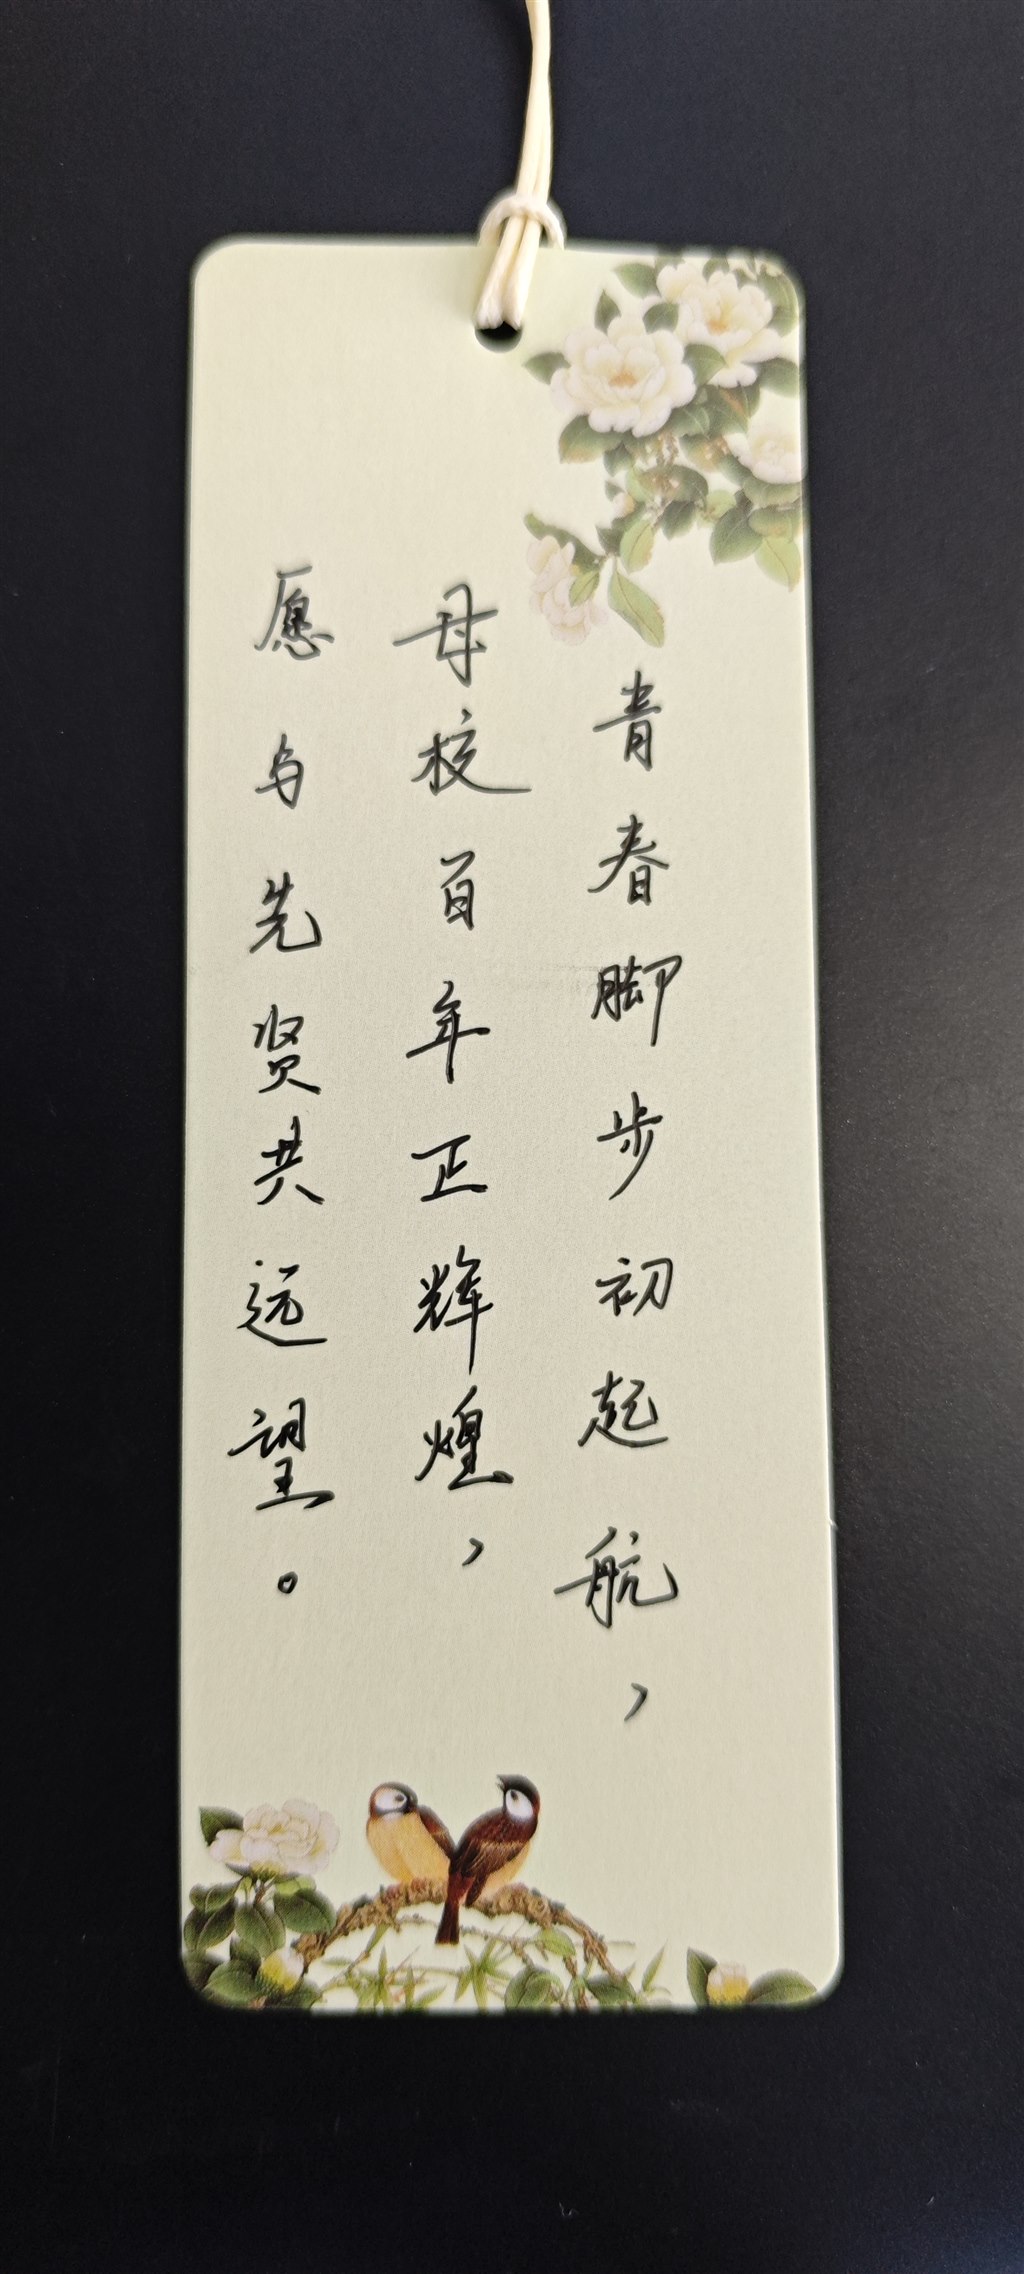 青春脚步初起航，
母校百年正辉煌，
愿与先贤共远望。